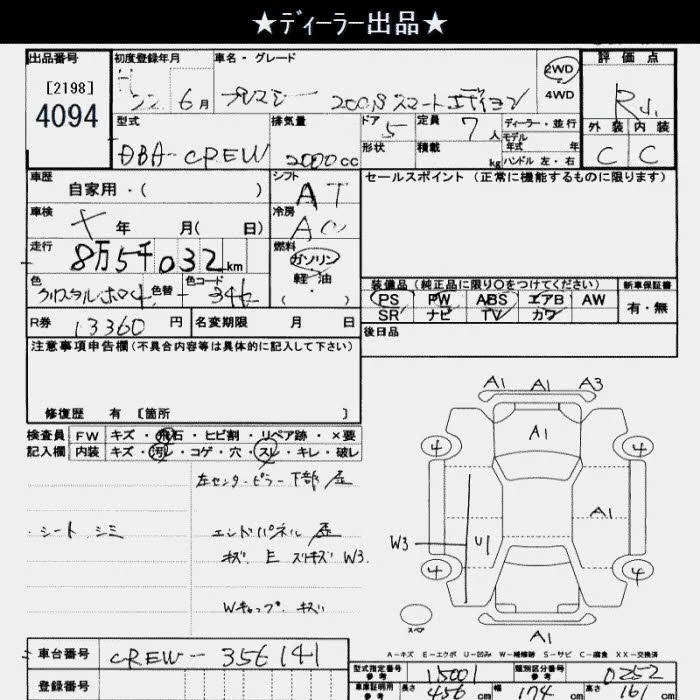 ★ディーラー出品★
出品番号 初度登録年月 車名・グレード 2WD 評価点
[2198]
4094
22 6月 プレマシー 200S スマートエディション 4WD R
型式 排気量 ドア 定員 ディーラー・並行 外装 内装
DBA-CREW 2000cc 5 7人 モデル年式 年 C C
形状 積載 kg ハンドル 左・右
車歴 シフト セールスポイント(正常に機能するものに限ります)
自家用・( ) AT
車検 冷房
年 月( 日) AC
走行 燃料
8万5千032km ガソリン
軽油
色 色替 色コード ・( )
クリスタルホワイト 34K
装備品(純正品に限り〇をつけてください) 新車保証書
PS PW ABS エアB AW 有・無
SR ナビ TV カワ
R券 13360円 名変期限 月 日 後日品
注意事項申告欄(不具合内容等は具体的に記入して下さい)
修復歴 有 [箇所 ]
検査員 FW キズ・飛石・ヒビ割・リペア跡・×要
記入欄 内装 キズ・汚レ・コゲ・穴・スレ・キレ・破レ
左センターピラー下部 歪
・シート シミ
エンドパネル 歪
キズ E スリキズ W3.
Wキャップ キズ
A1 A1 A3
A1
4 4
A1
W3 U1
4 4
スペア
A1
A-キズ E-エクボ U-凹み W-補修跡 S-サビ C-腐食 XX-交換済
車台番号 CREW-356141
登録番号
型式指定番号 参考 15001 類別区分番号 参考 0252
車庫証明用 参考 長さ 456cm 幅 174cm 高さ 161cm